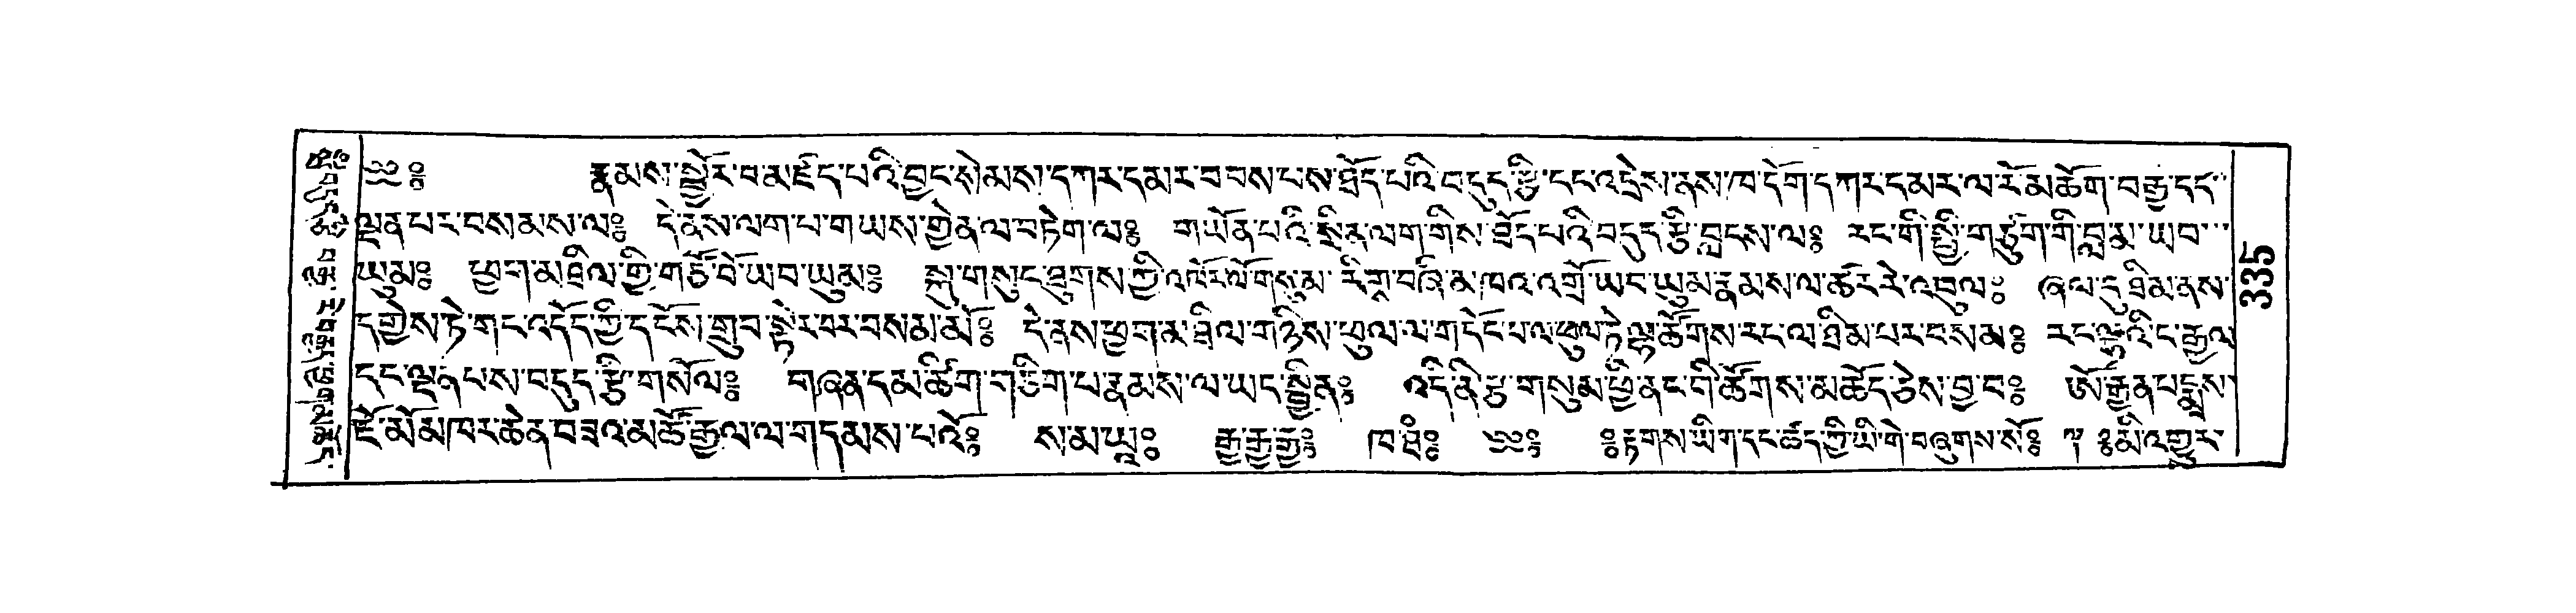 ༄༅༔ རྣམས་སྦྱོར་བ་མཛད་པའི་བྱང་སེམས་དཀར་དམར་བབས་པས་ཐོད་པའི་བདུད་རྩི་དང་འདྲེས་ནས་ཁ་དོག་དཀར་དམར་ལ་རོ་མཆོག་བརྒྱ་དང་
ལྡན་པར་བསམས་ལ༔ དེ་ནས་ལག་པ་གཡས་གྱེན་ལ་བཏེག་ལ༔ གཡོན་པའི་སྲིན་ལག་གིས་ཐོད་པའི་བདུད་རྩི་བླངས་ལ༔ རང་གི་སྤྱི་གཙུག་གི་བླམ་ཡབ་
ཡུམ༔ ཕྱག་མཐིལ་གྱི་གཙོ་བོ་ཡབ་ཡུམ༔ སྐུ་གསུང་ཐུགས་ཀྱི་འཁོར་ལོ་གསུམ་རིགྣ་བཞི་མཁའ་འགྲོ་ཡང་ཡུམ་རྣམས་ལ་ཚར་རེ་འབུལ༔ ཞལ་དུ་ཐིམ་ནས་
དགྱེས་ཏེ་གང་འདོད་ཀྱི་དངོས་གྲུབ་སྟེར་བར་བསམ་མོ༔ དེ་ནས་ཕྱག་མཐིལ་གཉིས་ཕུལ་ལ་གདེང་པལ་ཕུལ་ཏེ་ལྷ་ཚོགས་རང་ལ་ཐིམ་པར་བསམ༔ རང་ལྷའི་ང་རྒྱལ
དང་ལྡན་པས་བདུད་རྩི་གསོལ༔ གཞན་དམ་ཚིག་གཅིག་པ་རྣམས་ལ་ཡང་སྦྱིན༔ འདི་ནི་རྩ་གསུམ་ཕྱི་ནང་གི་ཚོགས་མཆོད་ཅེས་བྱ་བ༔ ཨོ་རྒྱན་པདྨས་
ཇོ་མོ་མཁར་ཆེན་བཟའ་མཚོ་རྒྱལ་ལ་གདམས་པའོ༔ ས་མ་ཡཱ༔ རྒྱ་རྒྱ་རྒྱ༔ ཁ་ཐཾ༔ ༄༅༔ ༔རྟགས་ཡིག་དང་ཚད་ཀྱི་ཡི་གེ་བཞུགས་སོ༔ ༔མི་འགྱུར་